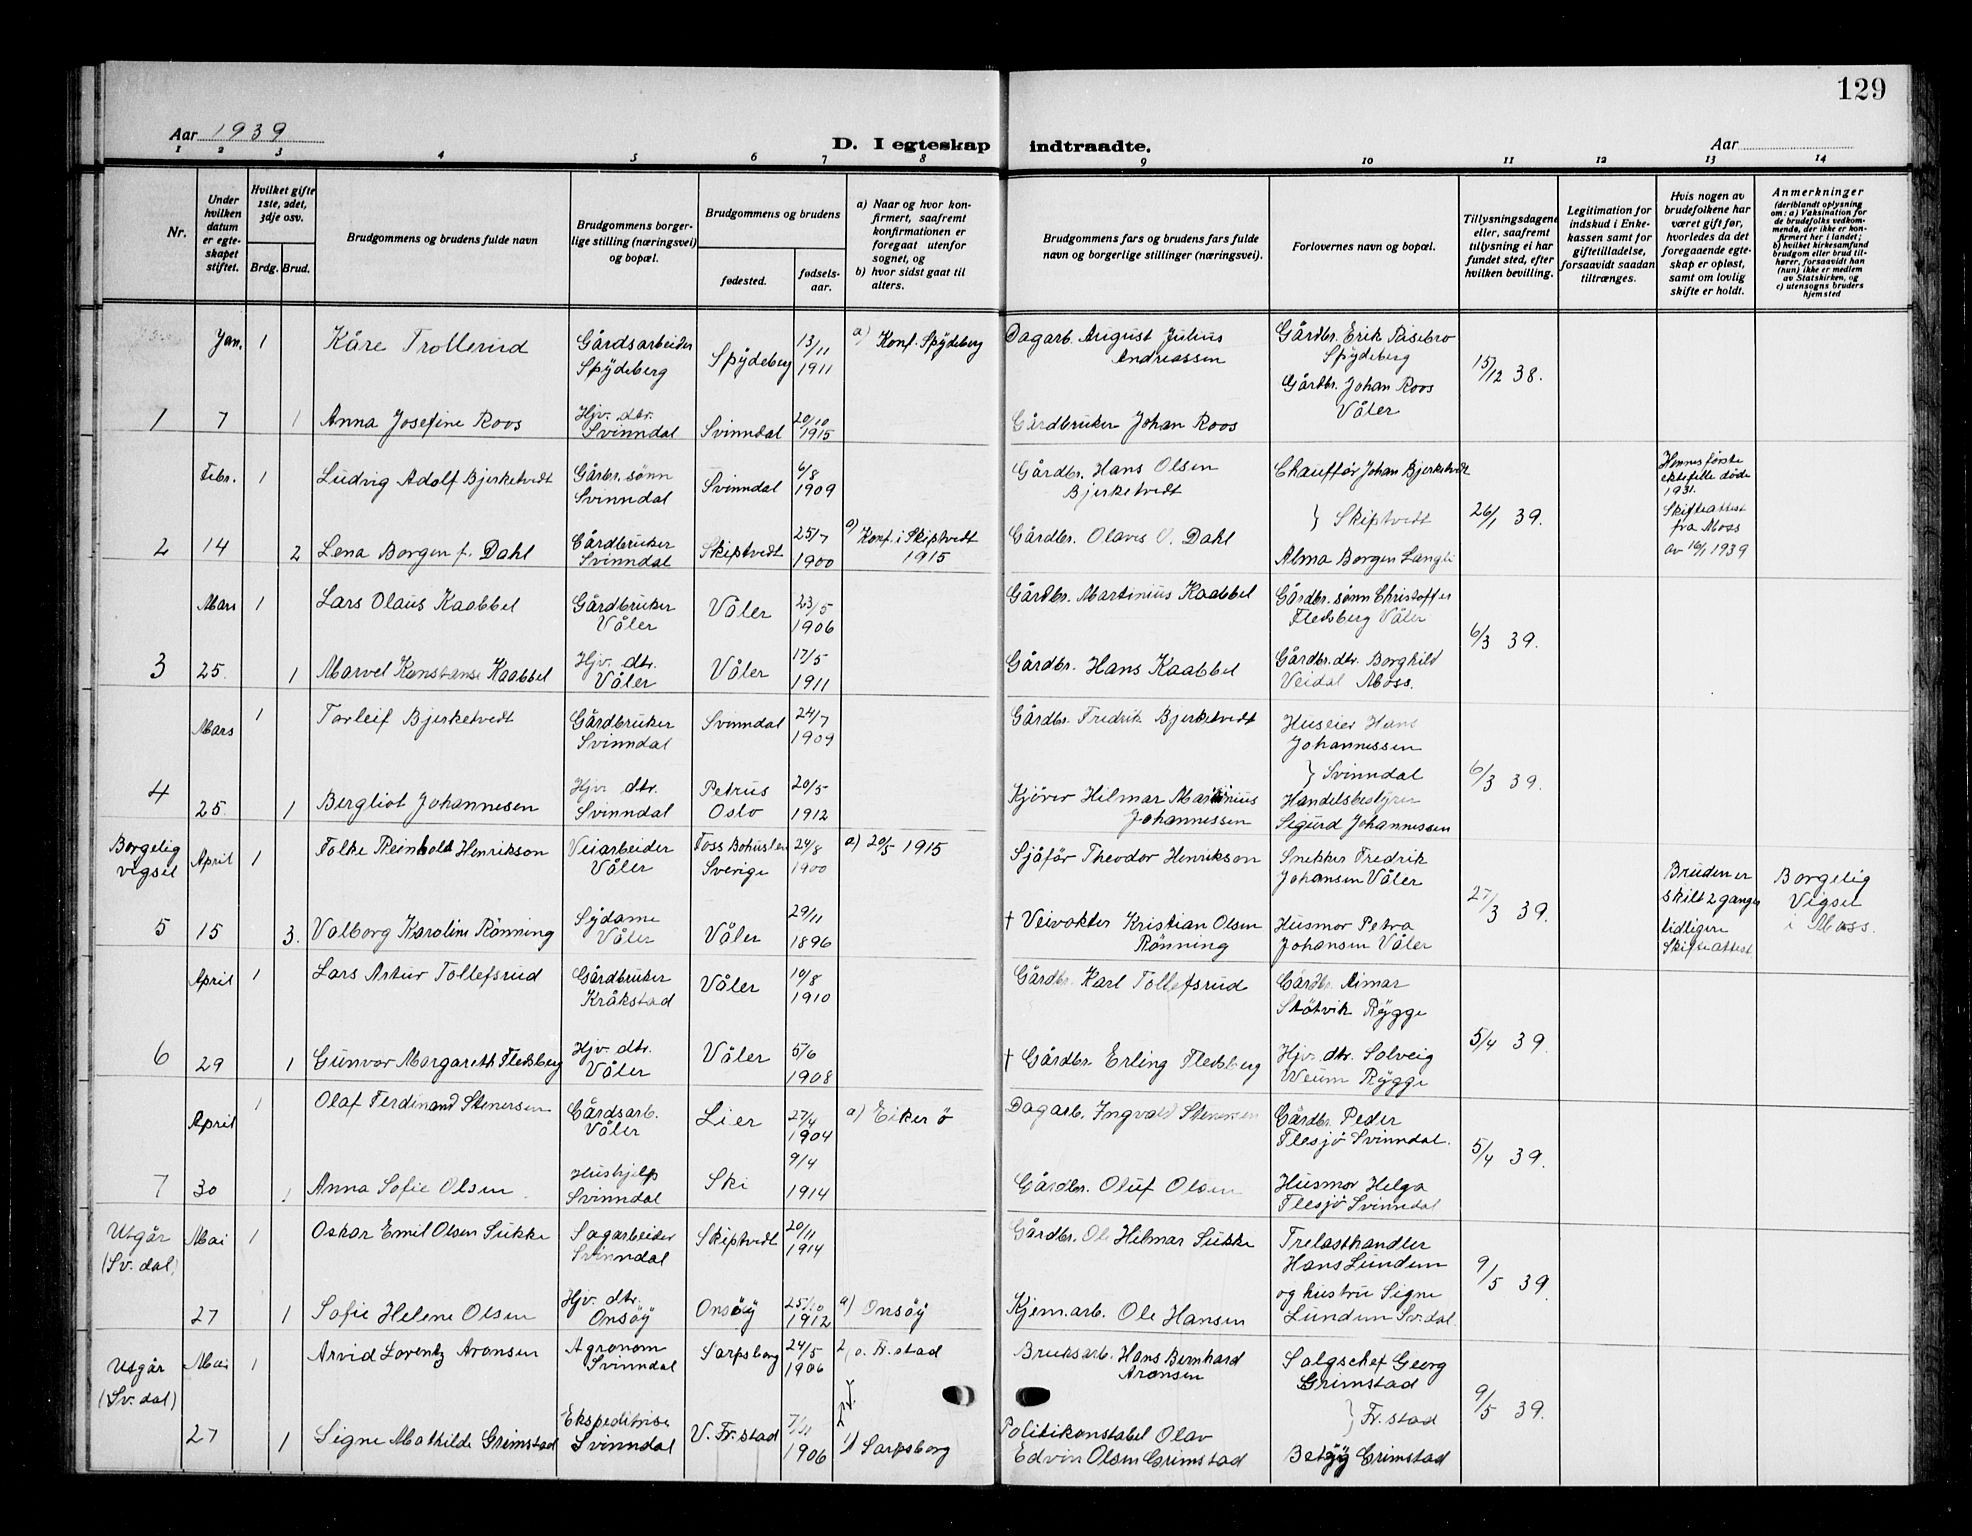 129
Aar 1939
D. I egteskap indtraadte.
Aar
1 2 3 4 5 6 7 8 9 10 11 12 13 14
Nr.
Under hvilken datum er egteskapet stiftet.
Hvilket gifte 1ste, 2det, 3dje osv.
Brdg. Brud.
Brudgommens og brudens fulde navn
Brudgommens borgerlige stilling (næringsvei) og bopæl.
Brudgommens og brudens
fødested.
fødselsaar.
a) Naar og hvor konfirmert, saafremt konfirmationen er foregaat utenfor sognet, og
b) hvor sidst gaat til alters.
Brudgommens fars og brudens fars fulde navn og borgerlige stillinger (næringsvei).
Forlovernes navn og bopæl.
Tillysningsdagene eller, saafremt tillysning ei har fundet sted, efter hvilken bevilling.
Legitimation for indskud i Enkekassen samt for giftetilladelse, forsaavidt saadan tiltrænges.
Hvis nogen av brudefolkene har været gift før, hvorledes da det foregaaende egteskap er opløst, samt om lovlig skifte er holdt.
Anmerkninger
(deriblandt oplysning om: a) Vaksination for de brudefolks vedkommende, der ikke er konfirmert her i landet; b) hvilket kirkesamfund brudgom eller brud tilhører, forsaavidt han (hun) ikke er medlem av Statskirken, og c) utensogns bruders hjemsted
Jan. 1 Kåre Trollerud Gårdsarbeider Spydeberg Spydeberg 13/11 1911 a) Konf. Spydeberg Dagarb. August Julius Andreassen Gårdbr. Erik Påsebro Spydeberg
15/12 38.
1 7 1 Anna Josefine Roos Hjv. dtr. Svinndal Svinndal 20/10 1915 Gårdbruker Johan Roos Gårdbr. Johan Roos Våler
Febr. 1 Ludvig Adolf Bjerketvedt Gårbr. sønn Svinndal Svinndal 6/8 1909 Gårdbr. Hans Olsen Bjerketvedt Chauffør Johan Bjerketvedt
} Skiptvedt 26/1 39.
Hennes første ektefelle døde 1931. Skifteattest fra Moss av 16/1 1939
2 14 2 Lena Borgen f. Dahl Gårdbruker Svinndal Skiptvedt 25/7 1900 a) Konf. i Skiptvedt 1915 Gårdbr. Olavus O. Dahl Alma Borgen Langli
Mars 1 Lars Olaus Kaabbel Gårdbruker Våler Våler 23/5 1906 Gårdbr. Martinius Kaabbel Gårdbr. sønn Christoffer Fledsberg Våler
6/3 39.
3 25. 1 Marvel Konstanse Kaabbel Hjv. dtr. Våler Våler 17/5 1911 Gårdbr. Hans Kaabbel Gårdbr. dtr. Borghild Veidal Moss.
Mars 1 Torleif Bjerketvedt Gårdbruker Svinndal Svinndal 24/7 1909 Gårdbr. Fredrik Bjerketvedt Huseier Hans Johannessen
} Svinndal 6/3 39.
4 25. 1 Bergliot Johannesen Hjv. dtr. Svinndal Petrus Oslo 20/5 1912 Kjører Hilmar Martinius Johannessen Handelsbestyrer Sigurd Johannessen
Borgelig vigsel
April 1 Folke Reinholdt Henrikson Veiarbeider Våler Foss Bohuslen Sverige 24/8 1900 a) 20/5 1915 Sjåfør Theodor Henrikson Snekker Fredrik Johansen Våler
27/3 39.
Bruden er skilt 2 ganger tidligere Skifteattest
Borgelig Vigsel i Moss.
5 15 3. Valborg Karoline Rønning Sydame Våler Våler 29/11 1896 † Veivokter Kristian Olsen Rønning Husmor Petra Johansen Våler
April 1 Lars Artur Tollefsrud Gårdbruker Kråkstad Våler 10/8 1910 Gårdbr. Karl Tollefsrud Gårdbr. Aimar Støtvik Rygge
5/4 39.
6 29 1 Gunvor Margareth Fledsberg Hjv. dtr. Våler Våler 5/6 1908 † Gårdbr. Erling Fledsberg Hjv. dtr. Solveig Weum Rygge
April 1 Olaf Ferdinand Stenersen Gårdsarb. Våler Lier 27/4 1904 a) Eiker ö Dagarb. Ingvald Stenersen Gårdbr. Peder Flesjø Svinndal.
5/4 39.
7 30 1 Anna Sofie Olsen Hushjelp Svinndal Ski 9/4 1914 Gårdbr. Oluf Olsen Husmor Helga Flesjø Svinndal
Utgår (Sv. dal)
Mai 1 Oskar Emil Olsen Sukke Sagarbeider Svinndal Skiptvedt 20/11 1914 Gårdbr. Ole Hilmar Sukke Trelasthandler Hans Lundum
9/5 39.
27 1 Sofie Helene Olsen Hjv. dtr. Onsøy Onsøy 25/10 1912 a) Onsøy Kjem. arb. Ole Hansen og hustru Signe Lundum Sv. dal.
Utgår (Sv. dal)
Mai 1 Arvid Lorentz Aronsen Agronom Svinndal Sarpsborg 24/5 1906 Fr. stad Bruksarb. Hans Bernhard Aronsen Salgschef Georg Grimstad
} Fr. stad 9/5 39.
27 1 Signe Mathilde Grimstad Ekspeditrise Svinndal V. Fr. stad 7/11 1906 Sarpsborg Politikonstabel Olav Edvin Olsen Grimstad Betzy Grimstad